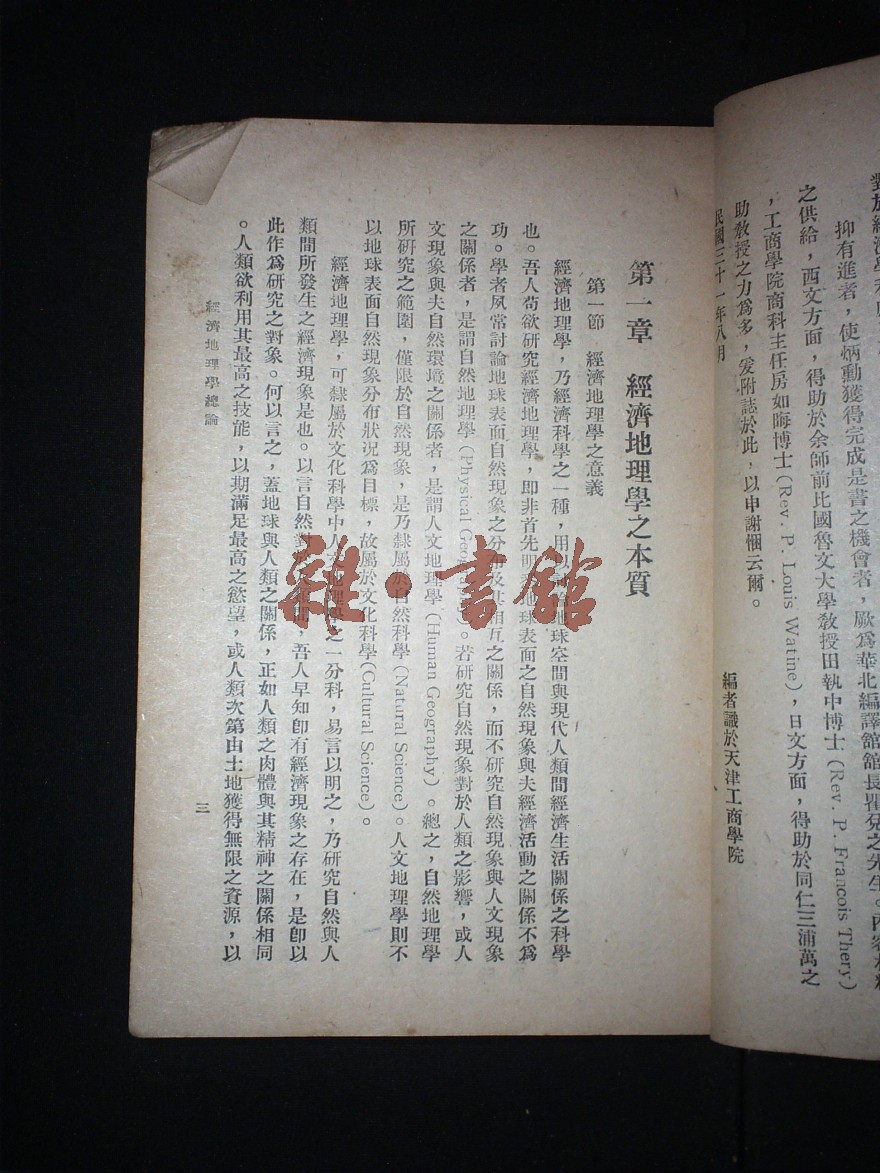 抑有進者，使炳勳獲得完成是書之機會者，厥為華北編譯舘舘長瞿兌之先生。內容材料
之供給，西文方面，得助於余師前比國魯文大學教授田執中博士(Rev. P. Francois Thery)
，工商學院商科主任房如晦博士(Rev. P. Louis Watine)，日文方面，得助於同仁三浦萬之
助教授之力為多，爰附誌於此，以申謝悃云爾。
民國三十一年八月
編者識於天津工商學院
第一章　經濟地理學之本質
第一節　經濟地理學之意義
經濟地理學，乃經濟科學之一種，用以地球空間與現代人類間經濟生活關係之科學
也。吾人苟欲研究經濟地理學，即非首先明地球表面之自然現象與夫經濟活動之關係不為
功。學者夙常討論地球表面自然現象之分布及其相互之關係，而不研究自然現象與人文現象
之關係者，是謂自然地理學(Physical Geography)。若研究自然現象對於人類之影響，或人
文現象與夫自然環境之關係者，是謂人文地理學(Human Geography)。總之，自然地理學
所研究之範圍，僅限於自然現象，是乃隸屬於自然科學(Natural Science)。人文地理學則不
以地球表面自然現象分布狀況為目標，故屬於文化科學(Cultural Science)。
經濟地理學，可隸屬於文化科學中人文地理學之一分科，易言以明之，乃研究自然與人
類間所發生之經濟現象是也。以言自然對於人類間，吾人早知卽有經濟現象之存在，是卽以
此作為研究之對象。何以言之，蓋地球與人類之關係，正如人類之肉體與其精神之關係相同
。人類欲利用其最高之技能，以期滿足最高之慾望，或人類次第由土地獲得無限之資源，以
經濟地理學總論
三
雜·書館